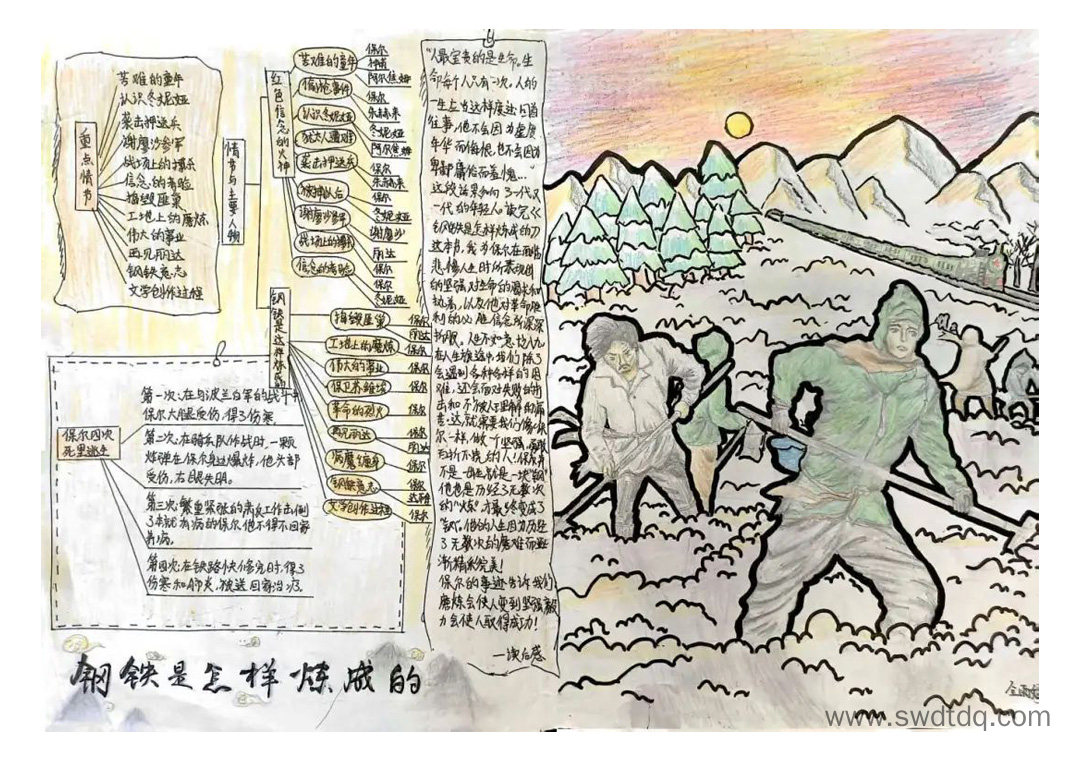 重点情节
苦难的童年
认识冬妮娅
袭击押送兵
谢廖沙参军
战场上的博杀
信念的考验
捣毁匪巢
工地上的磨炼
伟大的事业
再见丽达
钢铁意志
文学创作过程
情节与主要人物
红色信念的火种
苦难的童年
保尔
神甫
阿尔焦姆
偷枪事件
保尔
朱赫来
认识冬妮娅
冬妮娅
犹太人遭难
阿尔焦姆
袭击押送兵
保尔
朱赫来
保尔
冬妮娅
谢廖沙参军
谢廖沙
战场上的博杀
丽达
保尔
信念的考验
保尔
冬妮娅
钢铁是这样炼成的
捣毁匪巢
保尔
丽达
工地上的磨炼
保尔
伟大的事业
保尔
保卫苏维埃
保尔
革命的烈火
保尔
再见丽达
保尔
丽达
病魔缠身
保尔
钢铁意志
保尔
达雅
文学创作过程
保尔
保尔四次
死里逃生
第一次:在与波兰白军的战斗中
保尔大腿受伤,得了伤寒.
第二次:在骑兵队作战时,一颗
炸弹在保尔身边爆炸,他头部
受伤,右眼失明。
第三次:繁重紧张的肃反工作击倒
了本就有病的保尔他不得不回家
养病.
第四次:在铁路快修完时,得了
伤寒和肺炎.被送回家治疗.
"人最宝贵的是生命。生
命每个人只有一次。人的
一生应当这样度过:回首
往事,他不会因为虚度
年华而悔恨,也不会因为
卑鄙庸俗而羞愧..."
这段话震撼了一代又
一代的年轻人。读完《
钢铁是怎样炼成的》
这本书,我为保尔在面临
悲惨人生时所表现出
的坚强对生命的渴求和
执着,以及他对革命胜
利的必胜信念所深深
折服。人生不如意
在人生旅途中我们除了
会遇到各种各样的困
难,还会面对失败的打
击和不被人理解的痛
苦。这就需要我们像保
尔一样,做个坚强
的人!保尔并
不是一生出就是一块"钢"
他也是历经了无数次
的"火炼"才最终变成了
"钢"。他的人生因为历经
了无数次的磨难而逐
渐精彩完美!
保尔的事迹告诉我们
磨炼会使人更到坚强毅
力会使人取得成功!
—读后感
钢铁是怎样炼成的
www.swdtdq.com